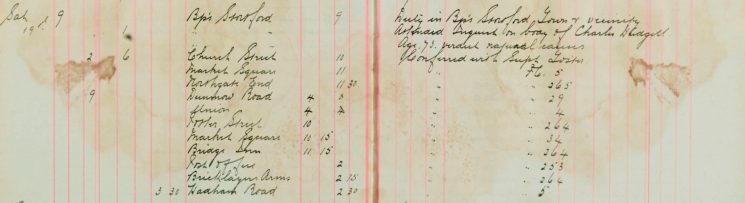 Sat 9 Bp's Stortford 9 Duty in Bp's Stortford, Town & vicinity
19th 6 " " Attended Inquest on body of Charles
Age 73. verdict natural causes
2 6 Church Street 10 Conferred with Supt Foster
Market Square 11 " P.C. 5
Northgate End 11 30 " " 265
9 Dunmow Road 4 3 " " 29
Union 4 4 " " 4
Foster Street 10 " " 264
Market Square 10 15 " " 34
Bridge Inn 11 15 " " 364
Post Office 2 " " 253
Bricklayers Arms 2 15 " " 264
3 30 Hadham Road 2 30 " " 5